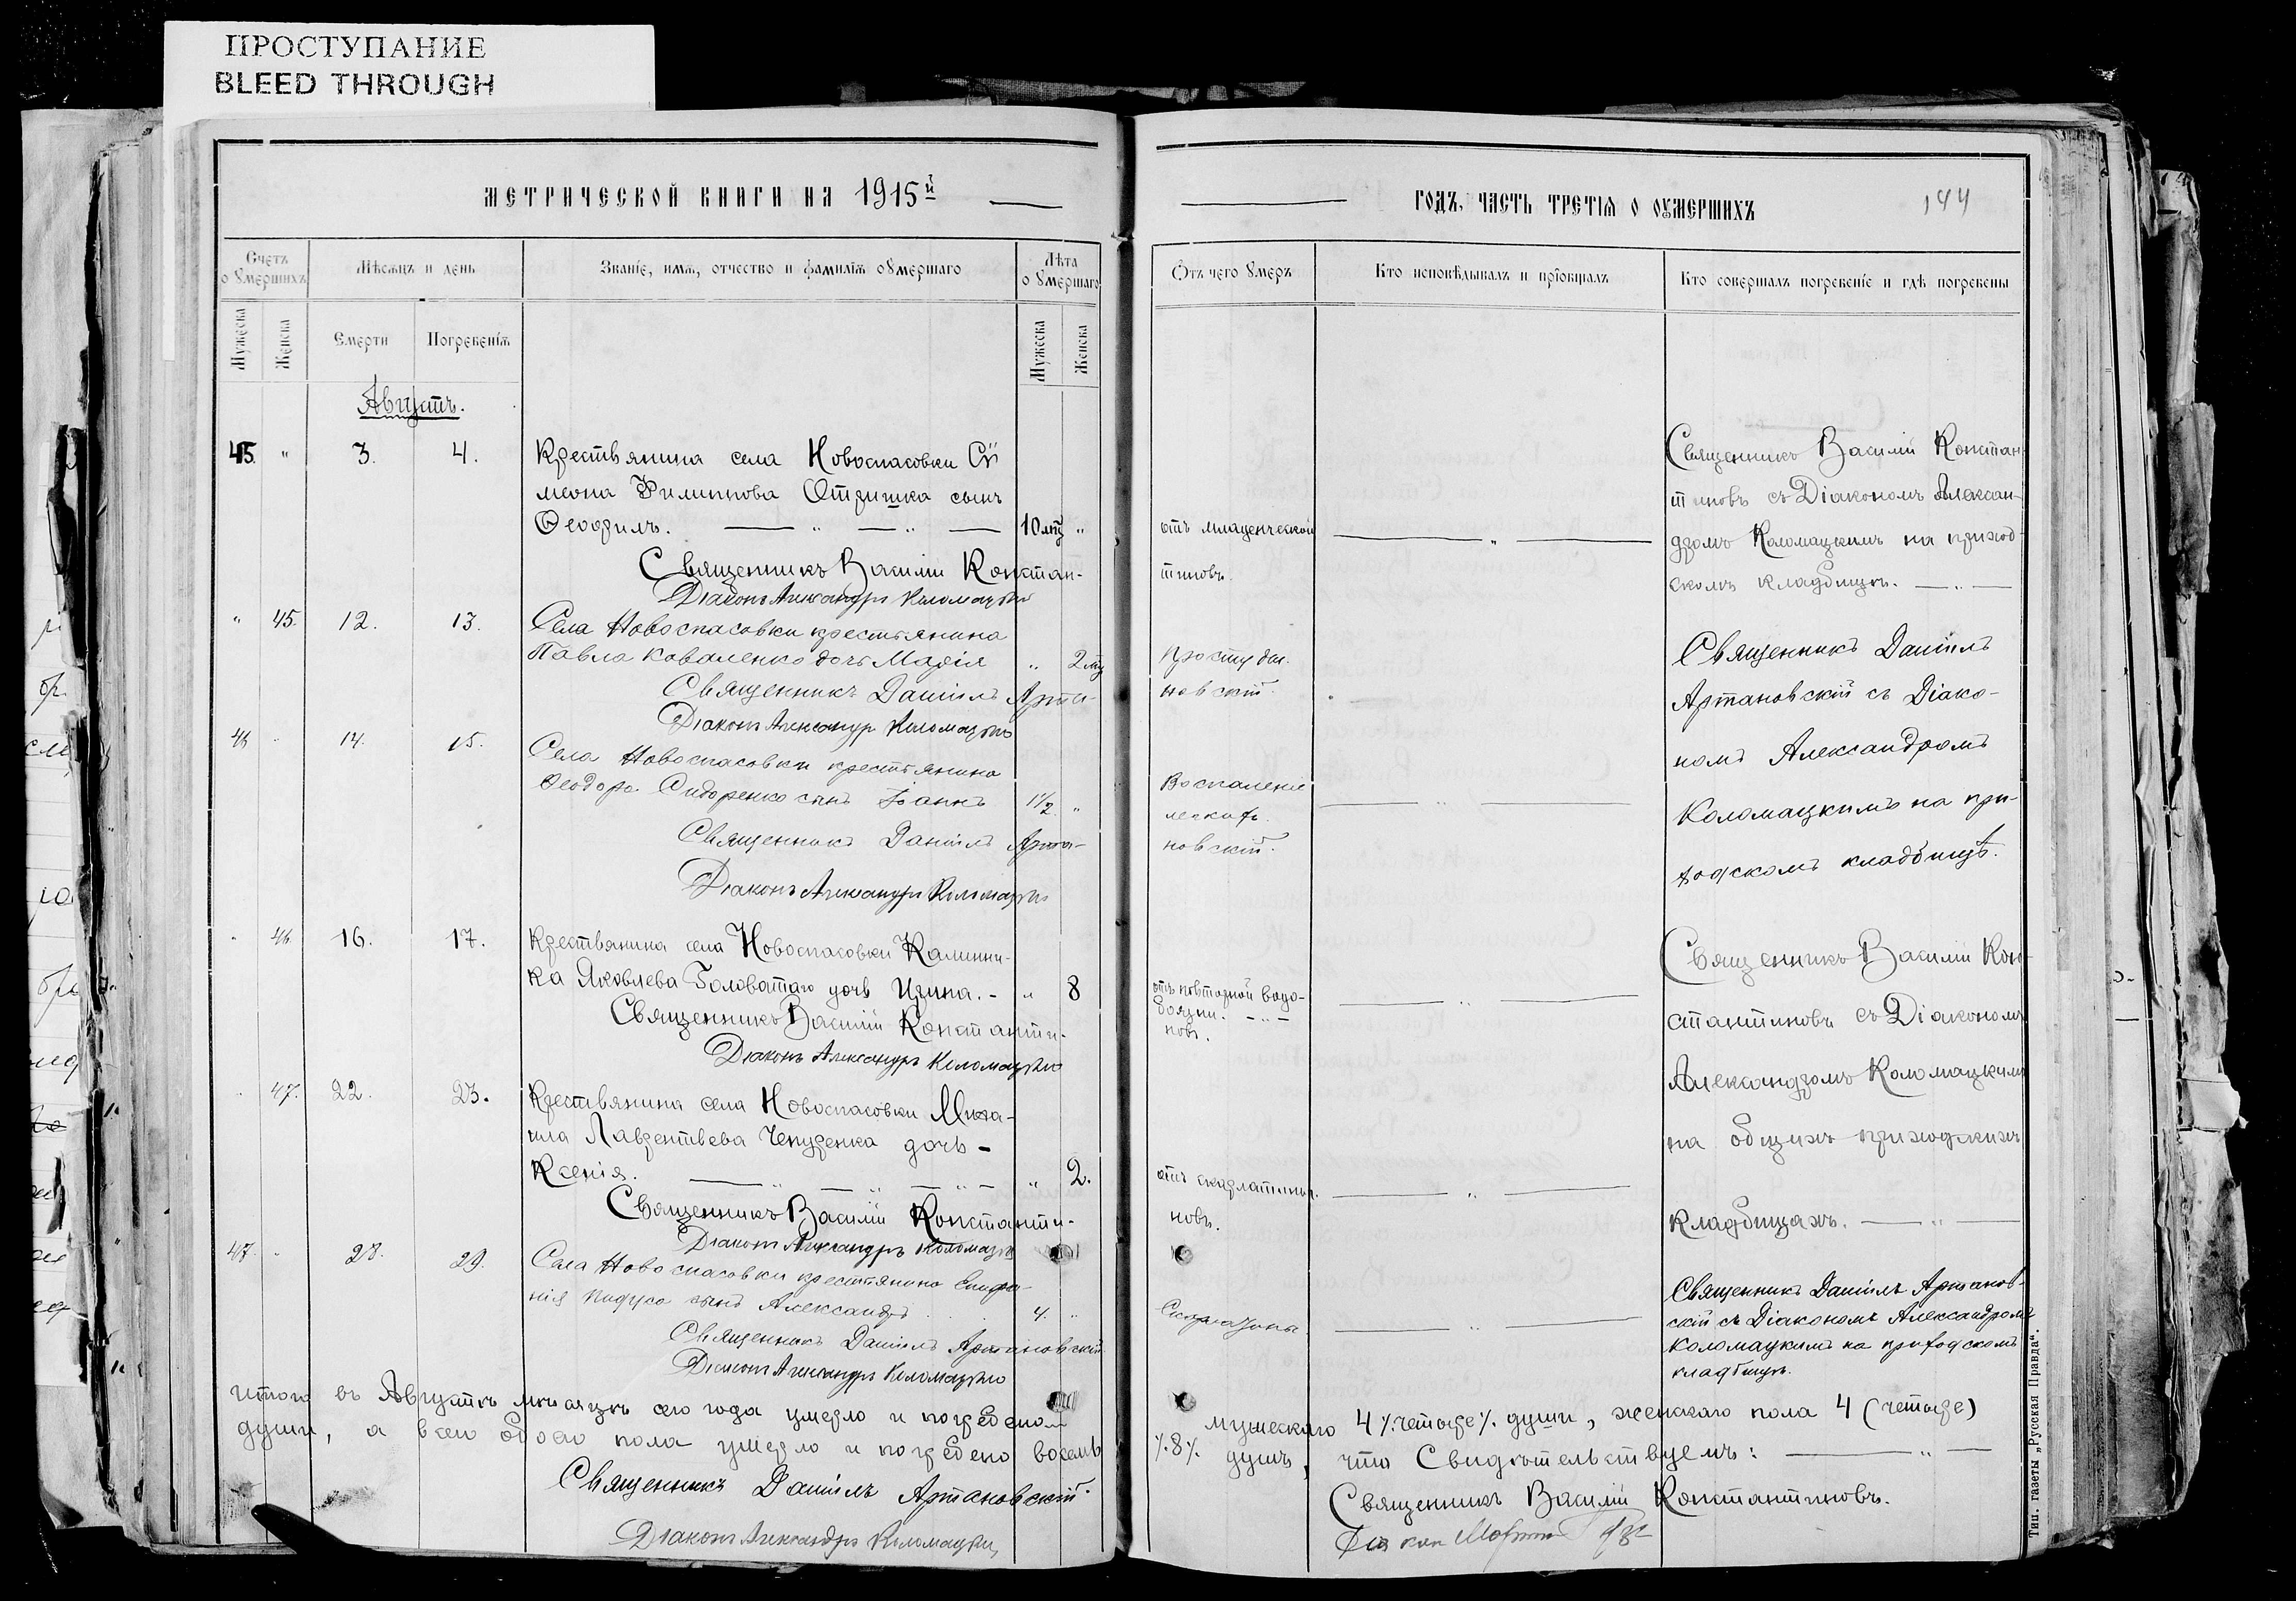 ПРОСТУПАНИЕ
BLEED THROUGH
МЕТРИЧЕСКОЙ КНИГИ НА 1915й
Счетъ о умершихъ
Мѣсяцъ и день
Званіе, имя, отчество и фамилія умершаго
Лѣта умершаго
Мужеска
Женска
Смерти
Погребенія
Мужеска
Женска
Августъ.
45. " 3. 4. Крестьянина села Новоспасовки Си-
меона Филиппова Отришка сынъ
Ѳеофилъ. 10 "
Священникъ Василій Констан-
Діаконъ Александръ Коломацкій
" 45. 12. 13. Села Новоспасовки крестьянина
Павла Коваленко дочь Марія " 2
Священникъ Даніилъ Арта-
Діаконъ Александръ Коломацкій
46 14. 15. Села Новоспасовки крестьянина
Ѳеодора Сидоренко сынъ Іоаннъ 1 1/2 "
Священникъ Даніилъ Арта-
Діаконъ Александръ Коломацкій
46. 16. 17. Крестьянина села Новоспасовки Калинни-
ка Яковлева Головатаго дочь Ирина. - " 8
Священникъ Василій Константи-
Діаконъ Александръ Коломацкій
47. 22. 23. Крестьянина села Новоспасовки Миха-
ила Лаврентьева дочь -
Ксенія. " 2.
Священникъ Василій Константи-
Діаконъ Александръ Коломацкій
47. 28. 29. Села Новоспасовки крестьянина Епифа-
нія сынъ Александръ 4. "
Священникъ Даніилъ Артановскій.
Діаконъ Александръ Коломацкій
Итого въ Августѣ мѣсяцѣ сего года умерло и погребено
души, а всего обоего пола умерло и погребено восемь
Священникъ Даніилъ Артановскій.
Діаконъ Александръ Коломацкій
ГОДЪ, ЧАСТЬ ТРЕТІЯ О УМЕРШИХЪ
144
Отъ чего умеръ
Кто исповѣдывалъ и пріобщалъ
Кто совершалъ погребеніе и гдѣ погребены
отъ младенческой
тиновъ.
Священникъ Василій Констан-
тиновъ съ Діакономъ Алексан-
дромъ Коломацкимъ на приход-
скомъ кладбищѣ.
Простуды.
новскій.
Воспаленіе
легкихъ.
новскій.
Священникъ Даніилъ
Артановскій съ Діако-
номъ Александромъ
Коломацкимъ на при-
ходскомъ кладбищѣ.
водо-
боязни.
новъ.
отъ скарлатины.
новъ.
Священникъ Василій Кон-
стантиновъ съ Діакономъ
Александромъ Коломацкимъ
на общихъ приходскихъ
кладбищахъ.
Священникъ Даніилъ Артанов-
скій съ Діакономъ Александромъ
Коломацкимъ на приходскомъ
кладбищѣ.
мужескаго 4 /.четыре/. души, женскаго пола 4 (четыре)
/.8/. душъ, что свидѣтельствуемъ:
Священникъ Василій Константиновъ.
Тип. газеты „Русская Правда“.